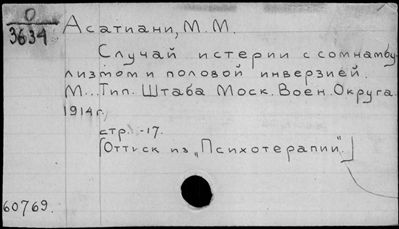 О
3634
Асатиани, М. М.
Случай истерии с сомнамбу-
лизмом и половой инверзией.
М.. Тип. Штаба Моск. Воен. Округа.
1914г.
стр. -17.
[Оттиск из „Психотерапии".]
60769.